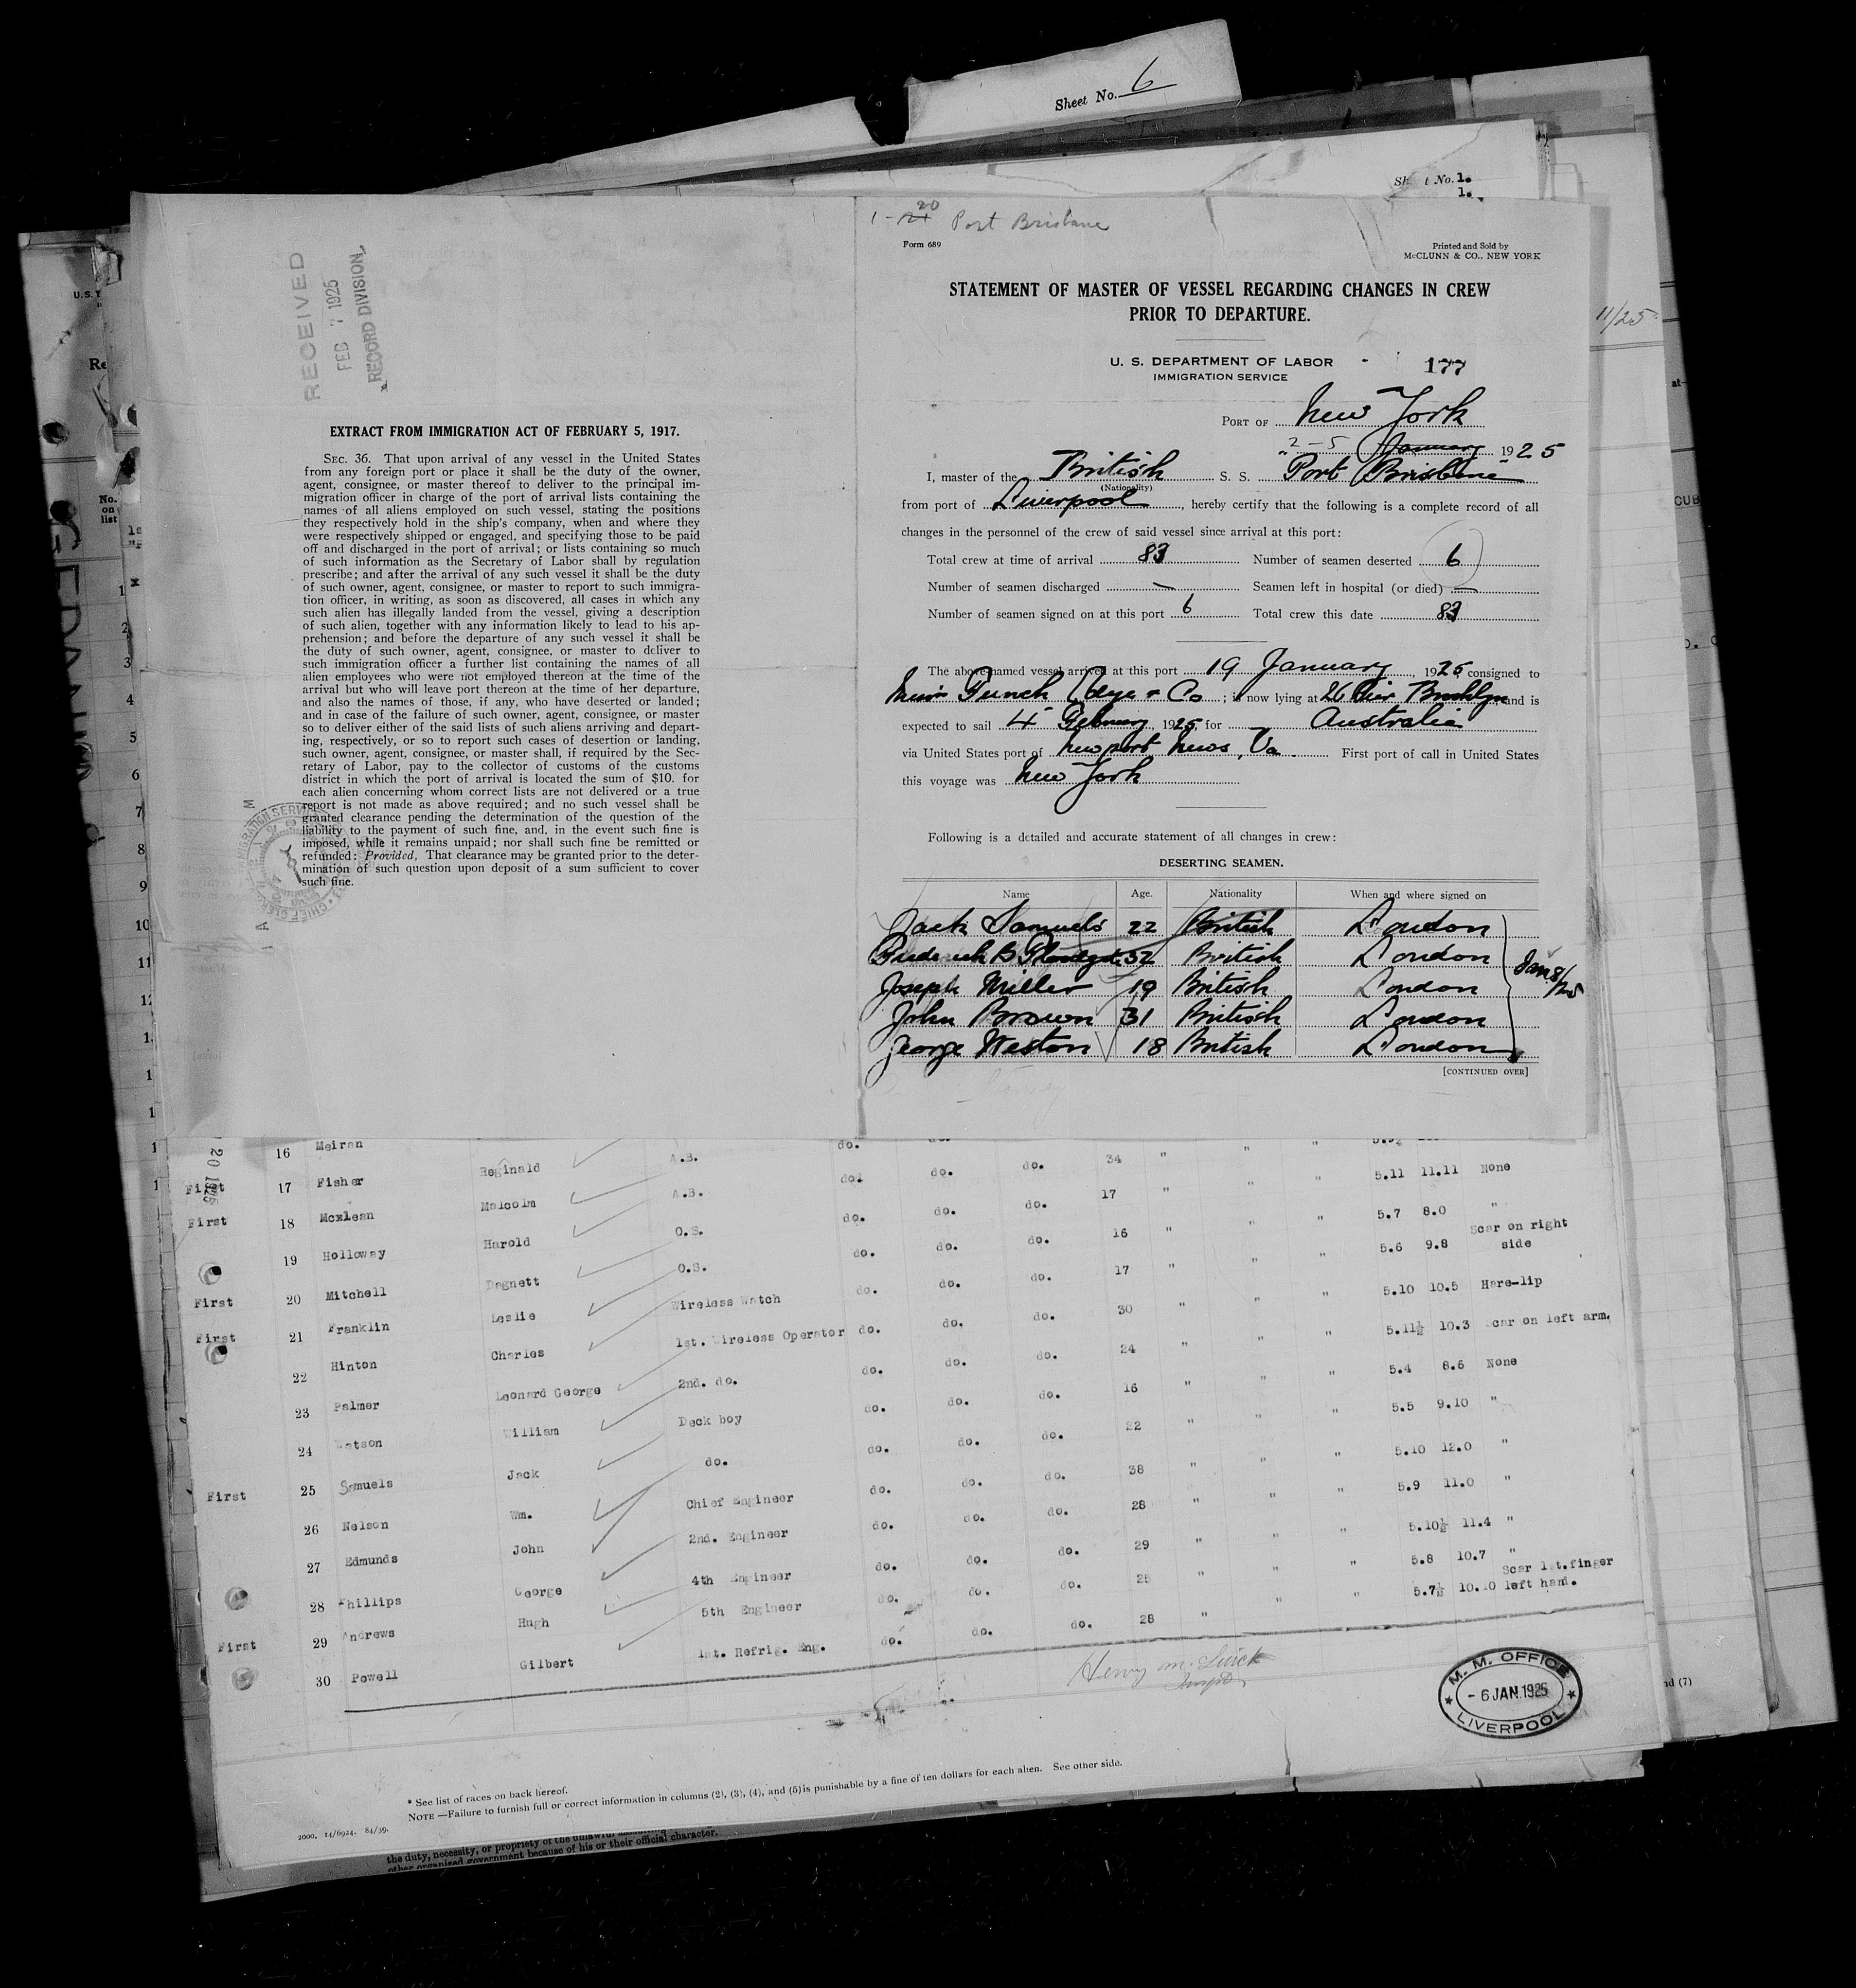 Sheet No. 6
Sh t No. 1.
1.
1-20 Port Brisbane
Form 689
Printed and Sold by
McCLUNN & CO., NEW YORK
RECEIVED
FEB 7 1925
RECORD DIVISION
STATEMENT OF MASTER OF VESSEL REGARDING CHANGES IN CREW
PRIOR TO DEPARTURE.
U. S. DEPARTMENT OF LABOR
IMMIGRATION SERVICE
177
11/25
PORT OF New York
2-5 January 1925
I, master of the British S. S. "Port Brisbane"
(Nationality)
from port of Liverpool, hereby certify that the following is a complete record of all
changes in the personnel of the crew of said vessel since arrival at this port:
Total crew at time of arrival 83 Number of seamen deserted 6
Number of seamen discharged — Seamen left in hospital (or died) —
Number of seamen signed on at this port 6 Total crew this date 83
The above-named vessel arrived at this port 19 January, 1925 consigned to
Funch Edye & Co; is now lying at 26 Pier Brooklyn and is
expected to sail 4 February, 1925, for Australia
via United States port of Newport News, Va First port of call in United States
this voyage was New York
Following is a detailed and accurate statement of all changes in crew:
DESERTING SEAMEN.
Name Age. Nationality When and where signed on
Jack Samuels 22 British London
Frederick B 32 British London
Joseph Miller 19 British London
John Brown 31 British London
George Weston 18 British London
Jan 8/25
[CONTINUED OVER]
EXTRACT FROM IMMIGRATION ACT OF FEBRUARY 5, 1917.
SEC. 36. That upon arrival of any vessel in the United States
from any foreign port or place it shall be the duty of the owner,
agent, consignee, or master thereof to deliver to the principal im-
migration officer in charge of the port of arrival lists containing the
names of all aliens employed on such vessel, stating the positions
they respectively hold in the ship's company, when and where they
were respectively shipped or engaged, and specifying those to be paid
off and discharged in the port of arrival; or lists containing so much
of such information as the Secretary of Labor shall by regulation
prescribe; and after the arrival of any such vessel it shall be the duty
of such owner, agent, consignee, or master to report to such immigra-
tion officer, in writing, as soon as discovered, all cases in which any
such alien has illegally landed from the vessel, giving a description
of such alien, together with any information likely to lead to his ap-
prehension; and before the departure of any such vessel it shall be
the duty of such owner, agent, consignee, or master to deliver to
such immigration officer a further list containing the names of all
alien employees who were not employed thereon at the time of the
arrival but who will leave port thereon at the time of her departure,
and also the names of those, if any, who have deserted or landed;
and in case of the failure of such owner, agent, consignee, or master
so to deliver either of the said lists of such aliens arriving and depart-
ing, respectively, or so to report such cases of desertion or landing,
such owner, agent, consignee, or master shall, if required by the Sec-
retary of Labor, pay to the collector of customs of the customs
district in which the port of arrival is located the sum of $10. for
each alien concerning whom correct lists are not delivered or a true
report is not made as above required; and no such vessel shall be
granted clearance pending the determination of the question of the
liability to the payment of such fine, and, in the event such fine is
imposed, while it remains unpaid; nor shall such fine be remitted or
refunded: Provided, That clearance may be granted prior to the deter-
mination of such question upon deposit of a sum sufficient to cover
such fine.
16 Meiran Reginald A.B. do. do. do. 34 " " " 5.11 11.11 None
First 17 Fisher Malcolm A.B. do. do. do. 17 " " " 5.7 8.0 "
First 18 Mcxlean Harold O.S. do. do. do. 16 " " " 5.6 9.8 Scar on right side
19 Holloway Dagnett O.S. do. do. do. 17 " " " 5.10 10.5 Hare-lip
First 20 Mitchell Leslie Wireless Watch do. do. do. 30 " " " 5.11½ 10.3 Scar on left arm.
First 21 Franklin Charles 1st. Wireless Operator do. do. do. 24 " " " 5.4 8.6 None
22 Hinton Leonard George 2nd. do. do. do. do. 16 " " " 5.5 9.10 "
23 Palmer William Deck boy do. do. do. 22 " " " 5.10 12.0 "
24 Watson Jack do. do. do. do. 38 " " " 5.9 11.0 "
First 25 Samuels Wm. Chief Engineer do. do. do. 28 " " " 5.10½ 11.4 "
26 Nelson John 2nd. Engineer do. do. do. 29 " " " 5.8 10.7 "
27 Edmunds George 4th Engineer do. do. do. 25 " " " 5.7½ 10.10 Scar 1st.finger left hand.
28 Phillips Hugh 5th Engineer do. do. do. 28 " "
First 29 Andrews Gilbert 1st. Refrig. Eng. do. do. do.
30 Powell
M. M. OFFICE
- 6 JAN 1925
LIVERPOOL
* See list of races on back hereof.
NOTE —Failure to furnish full or correct information in columns (2), (3), (4), and (5) is punishable by a fine of ten dollars for each alien. See other side.
2000. 14/6924. 84/39.
the duty, necessity, or propriety of the unlawful
other organized government because of his or their official character.